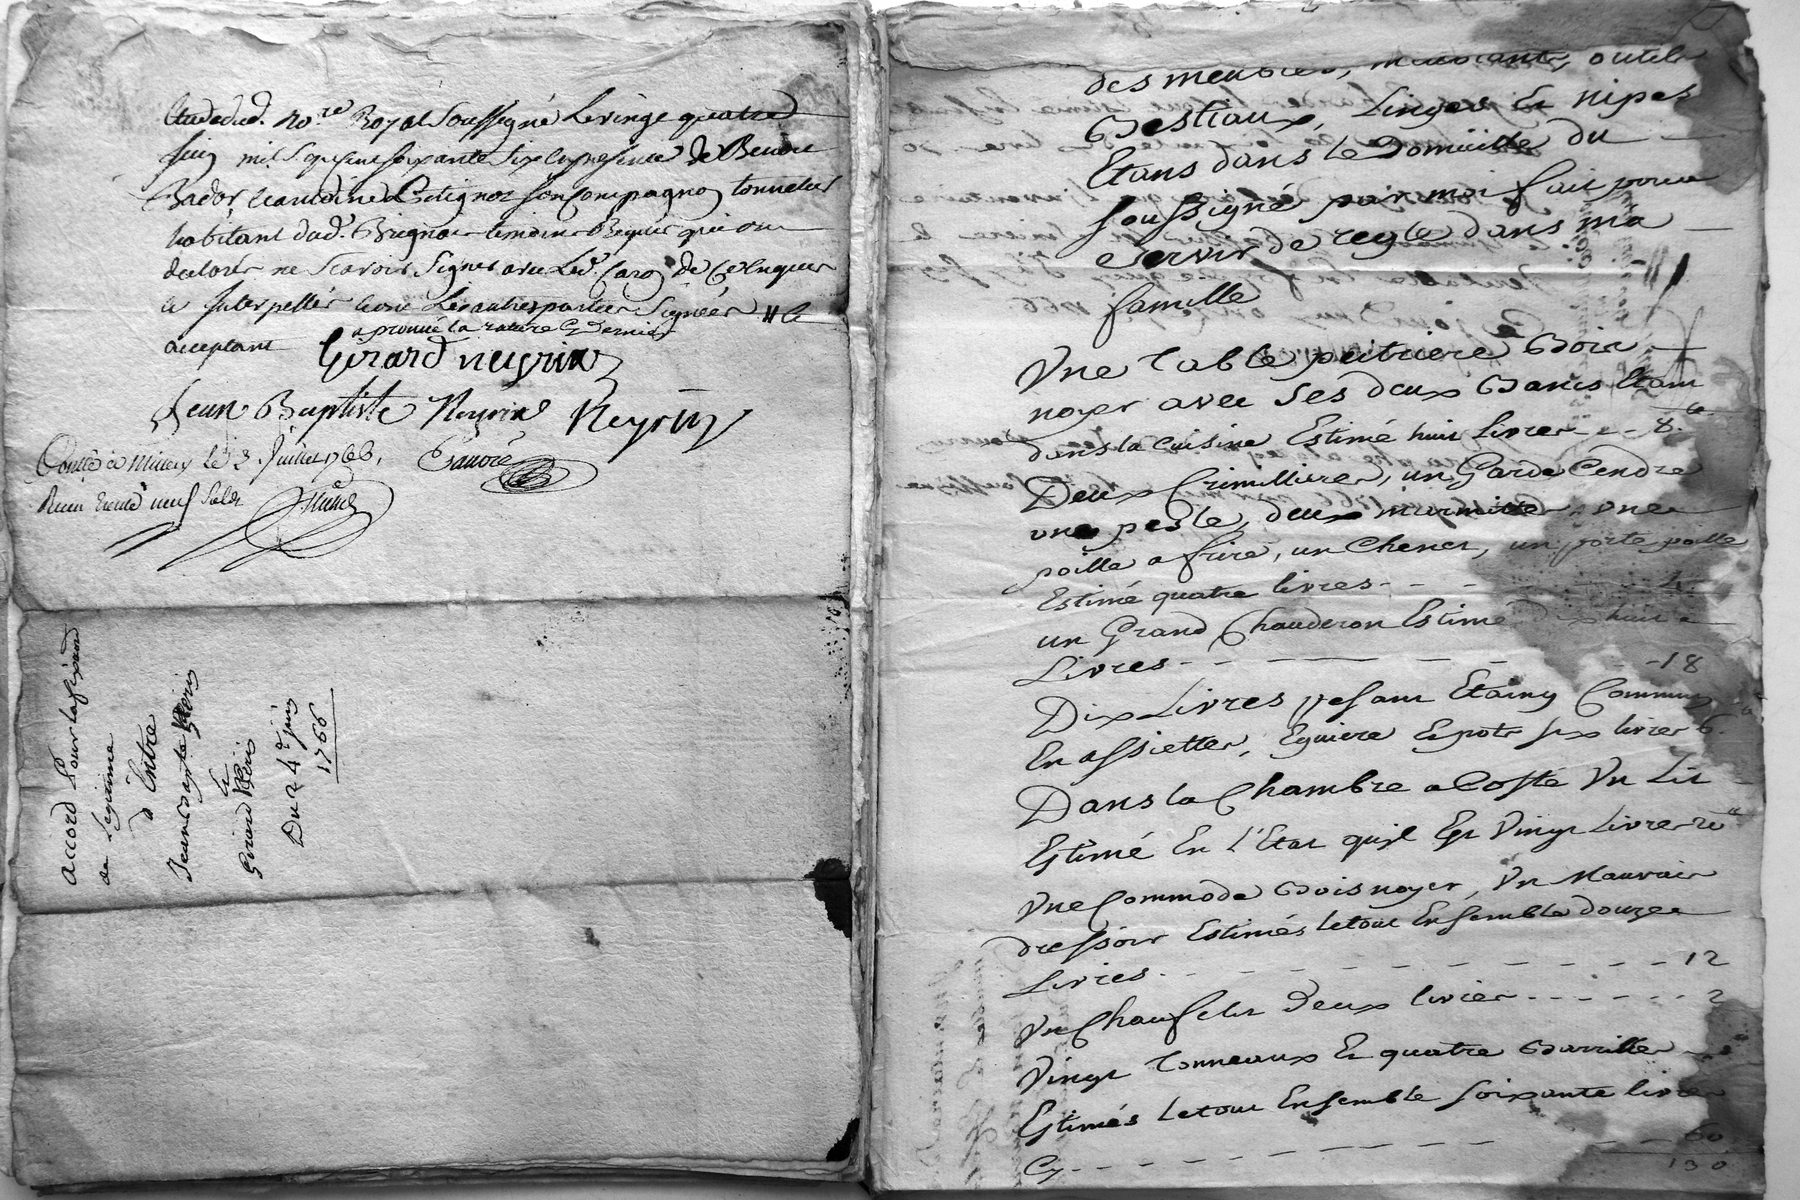 Royal Soussigné le vingt quatre
juin mil sept cent soixante six en presence de Benoit
Bador son compagnon tonnelier
habitant dud. Brignais temoins Requis qui ont
declaré ne scavoir signer avec led. Caro de ce enquis
et Interpellés les autres parties signées
acceptant
aprouvé la rature cy dernier
Girard neyrin
Jean Baptiste Neyrin Neyrin
Conllé a Millery le 3. Juillet 1766.
Recu trente neuf sols
accord Pour
de Legitime
Entre
Jean Bapte
&
Girard
Du 24e juin
1766
des meubles, outils
Bestiaux, Linges Et nipes
Etans dans le Domicille du
soussigné par moi fait pour
servir de regle dans ma
famille
Une table petriere Bois
noyer avec ses deux Bancs Etant
dans la cuisine Estimé huit Livres - - 8.
Deux Crimillieres, un Garde Cendre
une pesle, deux marmittes, une
poille a frire, un Chenet, un porte poille
Estimé quatre livres - - - 4
un Grand Chauderon Estimé dix huit
Livres - - - - - 18
Dix Livres pesant Etaing Commun
En assiettes, Eguiere Et pots six livres 6.
Dans la Chambre a Costé Un Lit
Estimé En l'Etat quil Est Vingt Livres 20
Une Commode Bois noyer, Un Mauvais
dressoir Estimés letout Ensemble douze
Livres - - - - - 12
Un Chauf Deux livres - - - - - 2
Vingt Tonneaux Et quatre Barrilles
Estimés letout Ensemble soixante livres
Cy - - - - - 60
130